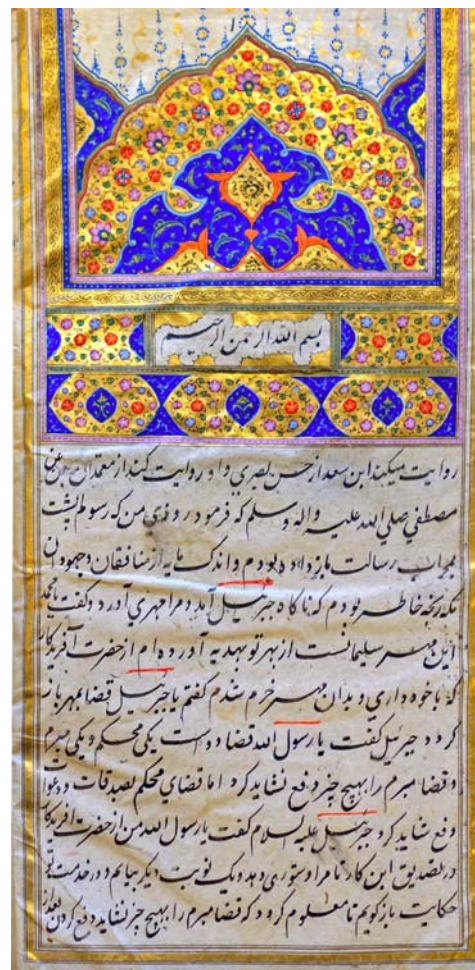 ۱
بسم الله الرحمن الرحیم
روایت میکند ابن سعد از حسن بصری و او روایت کند از معتمدان
مصطفی صلی الله علیه و اله و سلم که فرمود روزی من که رسولم پشت
بمحراب رسالت باز داده بودم و اندک مایه از منافقان و جهودان
رنجه خاطر بودم که ناکاه جبرئیل آمد و مرا مهری آورد و کفت یا محمد
این مهر سلیمانست از بهر تو بهدیه آورده ام از حضرت آفریدکار
که با خود داری و بدان مهر خرم شدم کفتم یا جبرئیل قضا بمهر باز
کردد جبرئیل کفت یا رسول الله قضا دو است یکی محکم و یکی مبرم
و قضا مبرم را بهیچ چیز دفع نشاید کرد اما قضای محکم بصدقات و دعوات
دفع شاید کرد و جبرئیل علیه السلام کفت یا رسول الله من از حضرت آفریدکار
در تصدیق این کار تا مرا دستوری دهد و یک نوبت دیکر بیایم و در خدمت تو
حکایت باز کویم تا معلوم کردد که قضا مبرم را بهیچ چیز نشاید دفع کردن